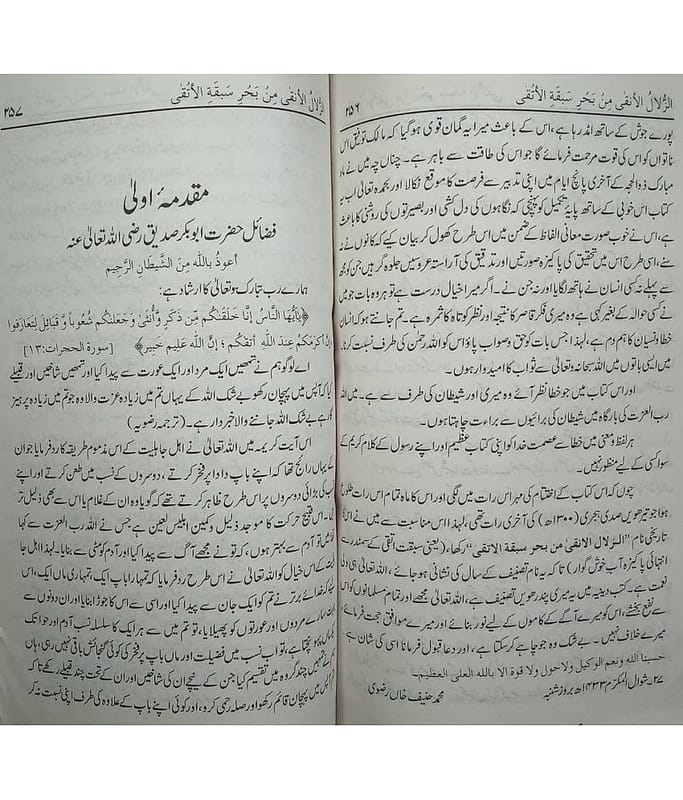 الزُّلالُ الأنقٰی مِنْ بَحْرِ سَبقَةِ الأتقٰی
۲۵۶
پورے جوش کے ساتھ امڈ رہا ہے، اس کے باعث میرا یہ گمان قوی ہو گیا کہ مالک توفیق اس
ناتواں کو اس کی قوت مرحمت فرمائے گا جو اس کی طاقت سے باہر ہے۔ چناں چہ میں نے ماہ
مبارک ذوالحجہ کے آخری پانچ ایام میں اپنی تدبیر سے فرصت کا موقع نکالا اور بحمدہ تعالیٰ اب یہ
کتاب اس خوبی کے ساتھ پایۂ تکمیل کو پہنچی کہ نگاہوں کی دل کشی اور بصیرتوں کی روشنی کا باعث
ہے، اس نے خوب صورت معانی الفاظ کے ضمن میں اس طرح کھول کر بیان کیے کہ کانوں نے نہ
سنے، اسی طرح اس میں تحقیق کی پاکیزہ صورتیں اور تدقیق کی آراستہ عروسیں جلوہ گر ہیں جن کو مجھ
سے پہلے نہ کسی انسان نے ہاتھ لگایا اور نہ جن نے۔ اگر میرا خیال درست ہے تو ہر وہ بات جو میں
نے کسی حوالہ کے بغیر کہی ہے وہ میری فکر قاصر کا نتیجہ اور نظر کوتاہ کا ثمرہ ہے۔ تم جانتے ہو کہ انسان
خطا و نسیان کا ہم دم ہے، لہٰذا جس بات کو حق وصواب پاؤ اس کو اللہ رحمٰن کی طرف نسبت کرنا۔
میں ایسی باتوں میں اللہ سبحانہ وتعالیٰ سے ثواب کا امیدوار ہوں۔
اور اس کتاب میں جو خطا نظر آئے وہ میری اور شیطان کی طرف سے ہے۔ میں اللہ
رب العزت کی بارگاہ میں شیطان کی برائیوں سے براءت چاہتا ہوں۔
ہر لفظ ومعنی میں خطا سے عصمت خدا کو اپنی کتاب عظیم اور اپنے رسول کے کلام کریم کے
سوا کسی کے لیے منظور نہیں۔
چوں کہ اس کتاب کے اختتام کی مہر اس رات میں لگی اور اس کا ماہ تمام اس رات طلوع
ہوا جو تیرھویں صدی ہجری (۱۳۰۰ھ) کی آخری رات تھی، لہٰذا اس مناسبت سے میں نے اس کا
تاریخی نام ”الزلال الانقیٰ من بحر سبقة الاتقی“ رکھا، (یعنی سبقت اتقی کے سمندر سے
انتہائی پاکیزہ آب خوش گوار) تاکہ یہ نام تصنیف کے سال کی نشانی ہو جائے، اللہ تعالیٰ ہی ولی
نعمت ہے۔ کتب دینیہ میں یہ میری پندرھویں تصنیف ہے، اللہ تعالیٰ مجھے اور تمام مسلمانوں کو اس
سے نفع بخشے، اس کو میرے آگے کے کاموں کے لیے نور بنائے اور میرے موافق حجت فرمائے،
میرے خلاف نہیں۔ بے شک وہ جو چاہے کر سکتا ہے، اور دعا قبول فرمانا اسی کی شان ہے
حسبنا الله ونعم الوكيل ولا حول ولا قوة الا بالله العلى العظيم۔
۲۷۔ شوال المکرم ۱۴۳۳ھ بروز شنبہ
محمد حنیف خاں رضوی
الزُّلالُ الأنقٰی مِنْ بَحْرِ سَبقَةِ الأتقٰی
۲۵۷
مقدمۂ اولیٰ
فضائل حضرت ابوبکر صدیق رضی اللہ تعالیٰ عنہ
أعوذُ بالله مِنَ الشَّيطَانِ الرَّجيم
ہمارے رب تبارک و تعالیٰ کا ارشاد ہے:
﴿يٰأيُّهَا النَّاسُ إنَّا خَلَقْنٰكُم مِّن ذَكَرٍ وَّأُنثٰى وَجَعَلنٰكُم شُعُوباً وَّقَبَائِلَ لِتَعَارَفُوا
إنَّ أكرَمَكُم عندَ اللهِ أتقٰكُم ؛ إنَّ اللهَ عَلِيم خَبِير﴾ [سورة الحجرات:۱۳]
اے لوگو ہم نے تمھیں ایک مرد اور ایک عورت سے پیدا کیا اور تمھیں شاخیں اور قبیلے
کیا کہ آپس میں پہچان رکھو بے شک اللہ کے یہاں تم میں زیادہ عزت والا وہ جو تم میں زیادہ پرہیز
گار ہے بے شک اللہ جاننے والا خبردار ہے۔ (ترجمہ رضویہ)
اس آیت کریمہ میں اللہ تعالیٰ نے اہل جاہلیت کے اس مذموم طریقہ کا رد فرمایا جو ان
کے یہاں رائج تھا کہ اپنے باپ دادا پر فخر کرتے، دوسروں کے نسب میں طعن کرتے اور اپنے
نسب کی بڑائی دوسروں پر اس طرح ظاہر کرتے تھے کہ گویا وہ ان کے غلام یا اس سے بھی ذلیل تر
ہیں۔ اس قبیح حرکت کا موجد ذلیل وکمین ابلیس لعین ہے جس نے اللہ رب العزت سے کہا
تھا: میں تو آدم سے بہتر ہوں، کہ تو نے مجھے آگ سے پیدا کیا اور آدم کو مٹی سے بنایا۔ لہٰذا اہل جا
ہلیت کے اس خیال کو اللہ تعالیٰ نے اس طرح رد فرمایا کہ تمہارا باپ ایک، تمہاری ماں ایک، اس
لیے کہ خدائے برتر نے تم کو ایک جان سے پیدا کیا اور اسی سے اس کا جوڑا بنایا اور ان دونوں سے
بہت سارے مردوں اور عورتوں کو پھیلایا، تو تم میں سے ہر ایک کا سلسلہ نسب آدم اور حوا تک
یکساں پہنچتا ہے، تو اب نسب میں فضیلت اور ماں باپ پر فخر کی کوئی گنجائش باقی نہیں رہی، ہاں
ہم نے تمہیں چند گروہ میں تقسیم کیا جن کے نیچے ان کی شاخیں اور ان کے تحت چند قبیلے رکھے تا کہ
تم آپس میں پہچان قائم رکھو اور صلہ رحمی کرو، اور کوئی اپنے باپ کے علاوہ کی طرف اپنی نسبت نہ کر